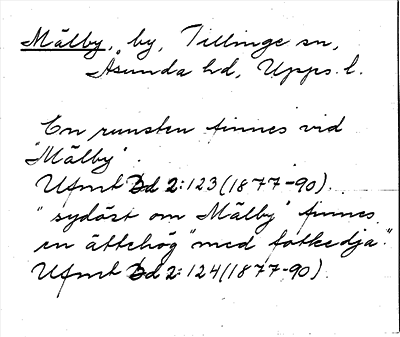 Mälby, by, Tillinge sn,
Åsunda hd, Upps. l.
En runsten finnes vid
"Mälby".
Ufmt Bd 2:123 (1877-90).
"sydöst om Mälby" finnes
en ättehög "med fotkedja."
Ufmt Bd 2:124 (1877-90).